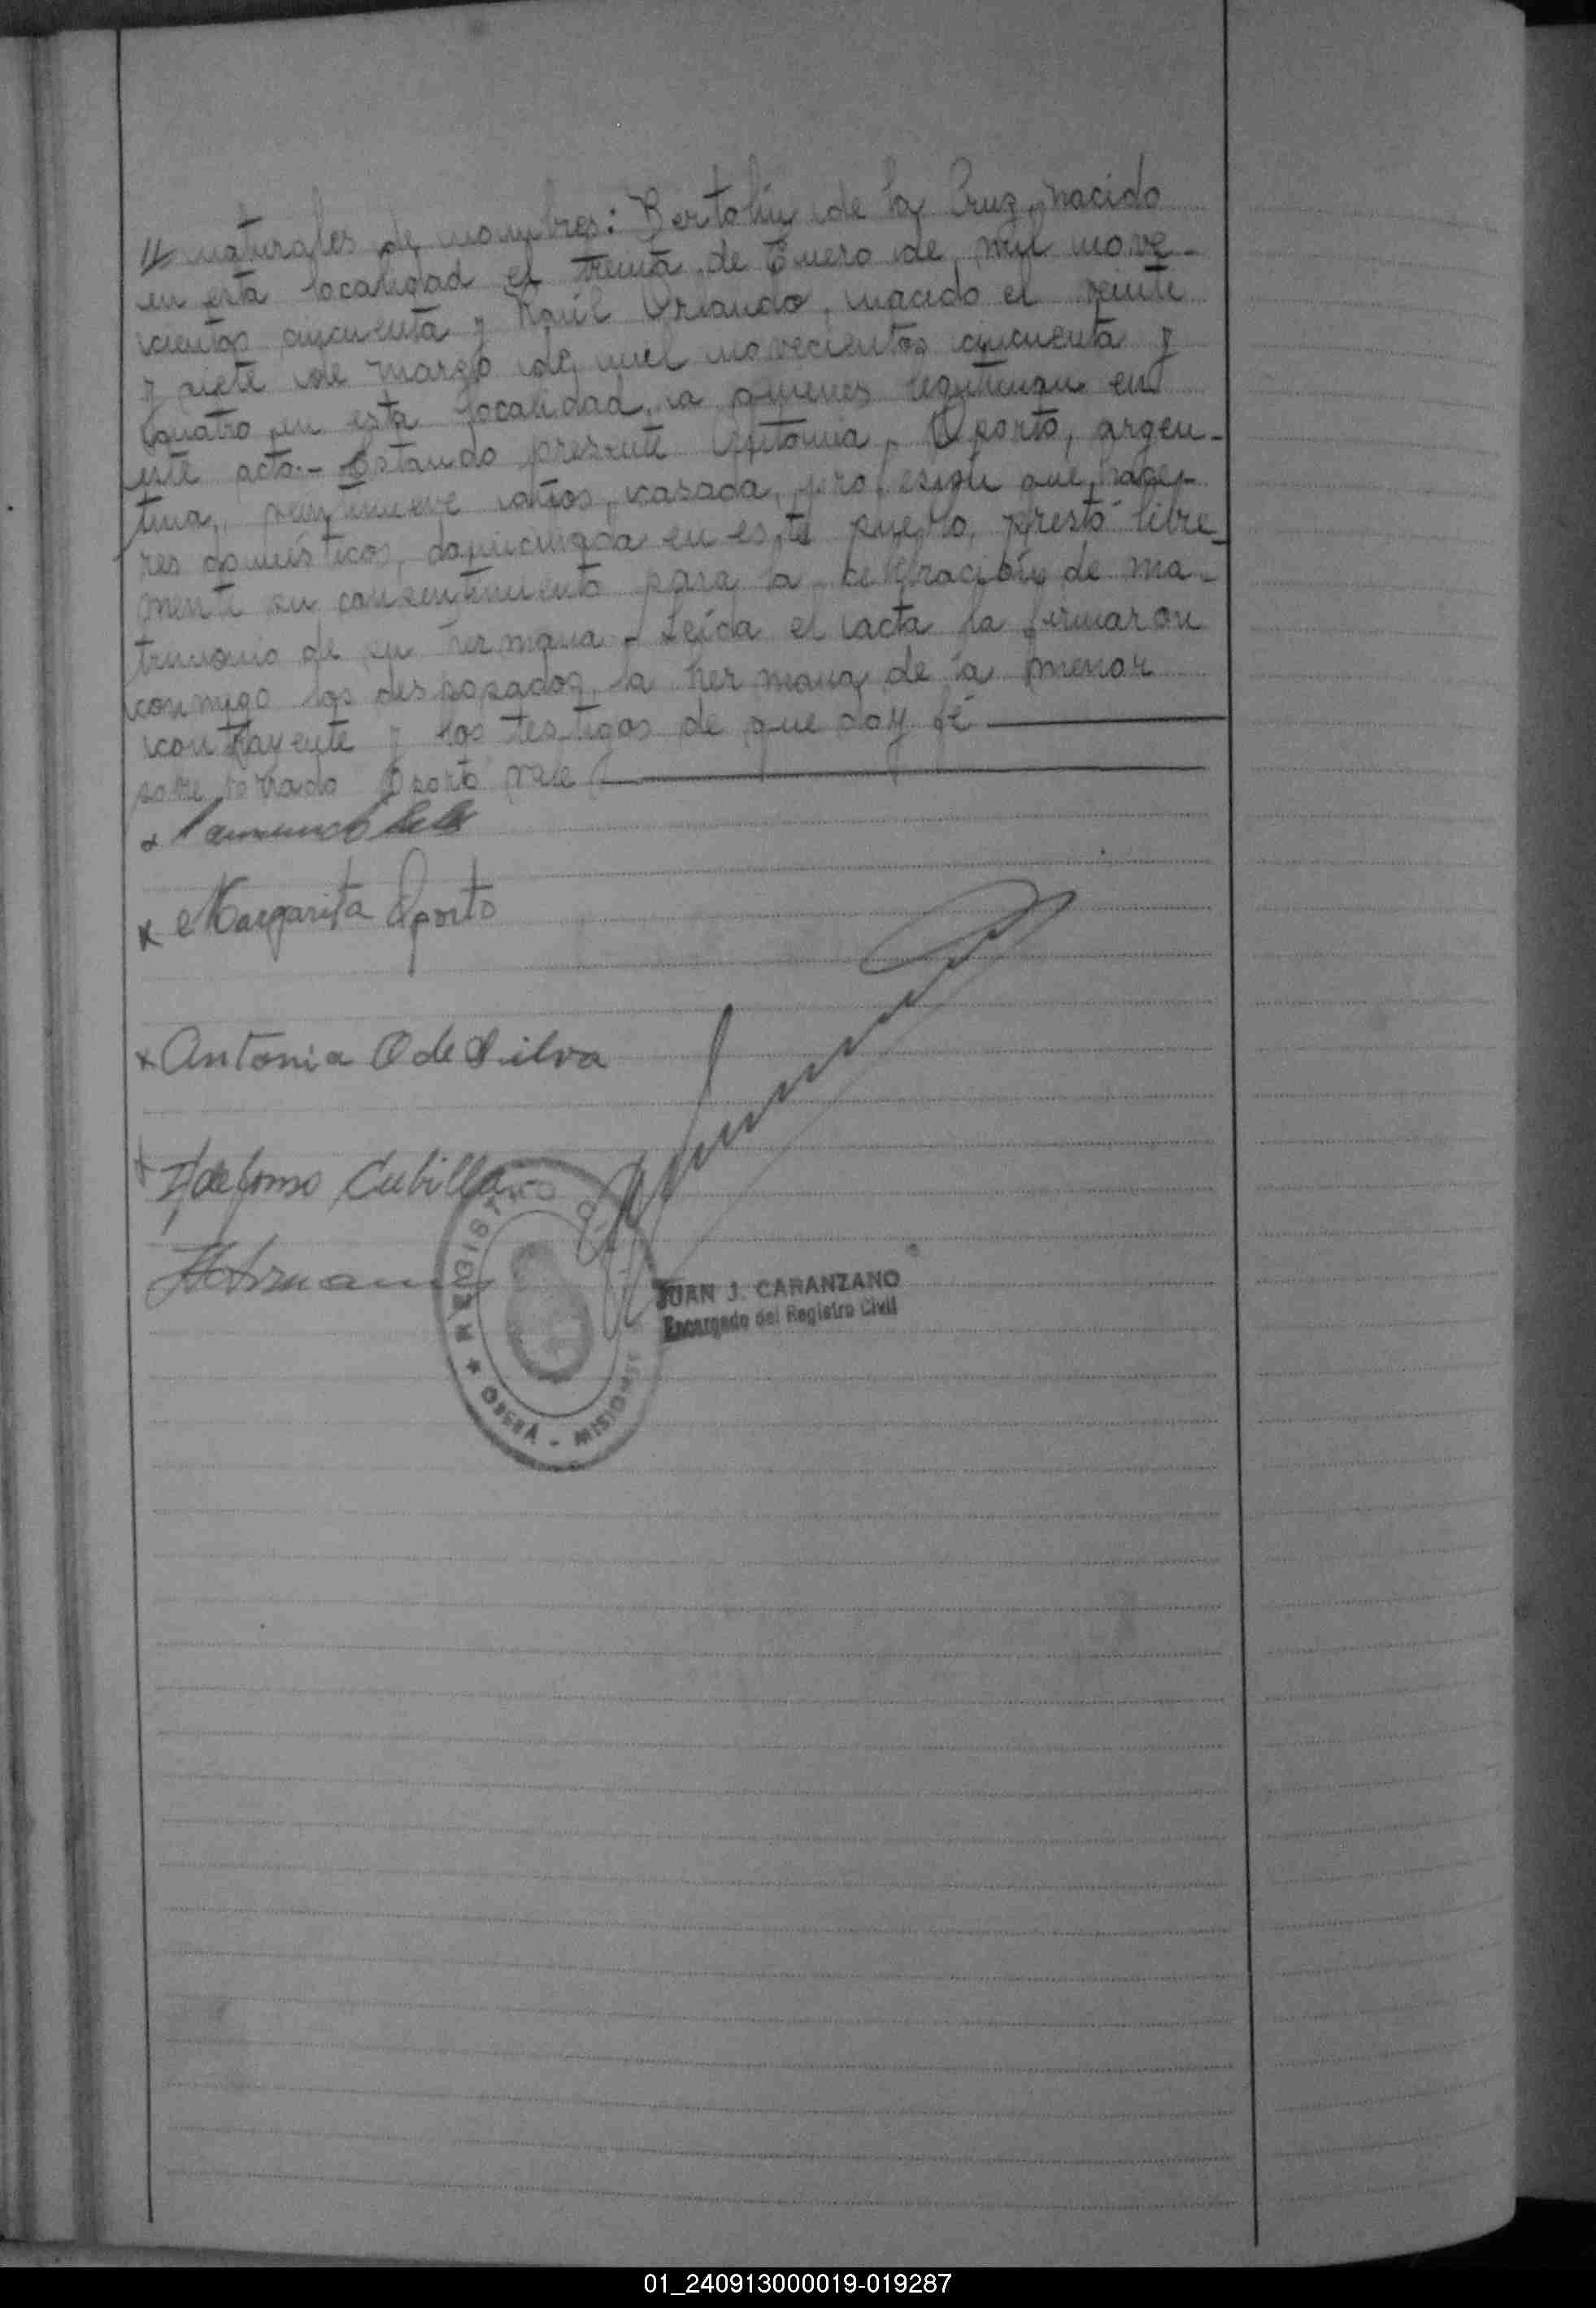 // naturales de nombres: Bertolin de la Cruz, nacido
en esta localidad el treinta de Enero de mil nove-
cientos cincuenta y Raúl Orlando, nacido el veinte
y siete de marzo de mil novecientos cincuenta y
cuatro en esta localidad, a quienes legitiman en
este acto.- Estando presente Antonia Oporto, argen-
tina, veintinueve años, casada, profesión quehace-
res domésticos, domiciliada en este pueblo, prestó libre-
mente su consentimiento para la celebración de ma-
trimonio de su hermana - Leída el acta la firmaron
conmigo los desposados, la hermana de la menor
contrayente y los testigos de que doy fé
sobre borrado Oporto vale
x
x Margarita Oporto
x Antonia O de Silva
x Ildefonso Cubilla
REGISTRO
JUAN J. CARANZANO
Encargado del Registro Civil
★ OBERÁ - MISIONES
01_240913000019-019287